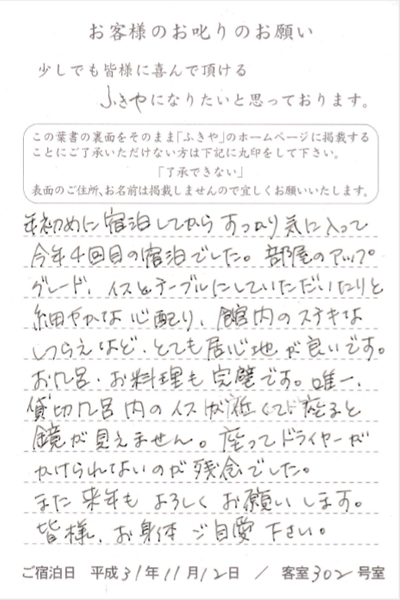 お客様のお叱りのお願い
少しでも皆様に喜んで頂ける
ふきやになりたいと思っております。
この葉書の裏面をそのまま「ふきや」のホームページに掲載する
ことにご了承いただけない方は下記に丸印をして下さい。
「了承できない」
表面のご住所、お名前は掲載しませんので宜しくお願いいたします。
年初めに宿泊してからすっかり気に入って
今年4回目の宿泊でした。部屋のアップ
グレード、イスとテーブルにしていただいたりと
細やかな心配り、館内のステキな
しつらえなど、とても居心地が良いです。
お風呂・お料理も完璧です。唯一、
貸切風呂内のイスが低くて、座ると
鏡が見えません。座ってドライヤーが
かけられないのが残念でした。
また来年もよろしくお願いします。
皆様、お身体ご自愛下さい。
ご宿泊日 平成31年11月12日 / 客室302号室